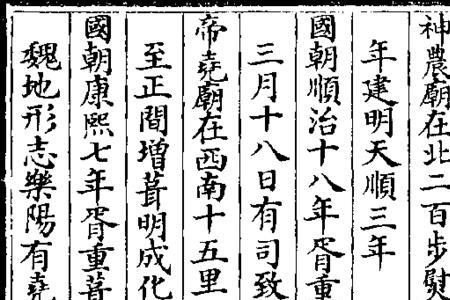 神農廟在北二百步慰
年建明天順三年
國朝順治十八年胥重
三月十八日有司致
帝堯廟在西南十五里
至正間增葺明成化
國朝康熙七年胥重葺
魏地形志樂陽有堯